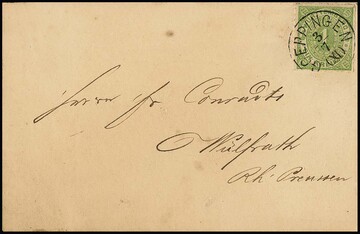 GOEPPINGEN
3
7
Herrn Fr Conradts
Wülfrath
Rh. Preussen